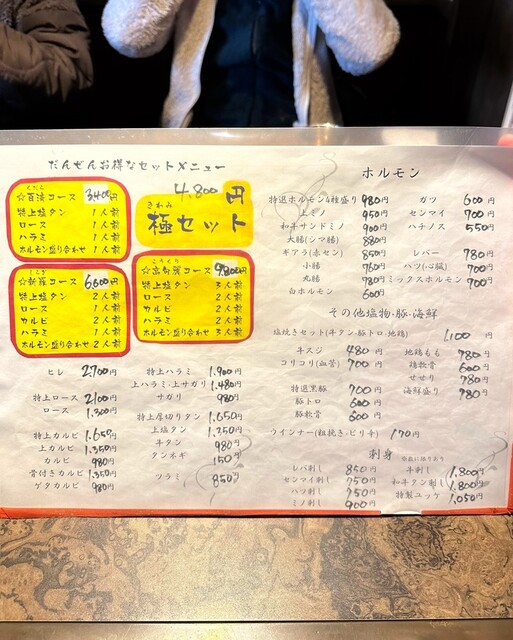 だんぜんお得なセットメニュー
くだら
☆百済コース 3,400円
特上塩タン 1人前
ロース 1人前
ハラミ 1人前
ホルモン盛り合わせ 1人前
4,800円
きわみ
極セット
しらぎ
☆新羅コース 6,600円
特上塩タン 2人前
ロース 1人前
カルビ 2人前
ハラミ 1人前
ホルモン盛り合わせ 2人前
こうくり
☆高句麗コース 9,800円
特上塩タン 3人前
ロース 2人前
カルビ 2人前
ハラミ 2人前
ホルモン盛り合わせ 3人前
ヒレ 2,700円
特上ロース 2,100円
ロース 1,300円
特上カルビ 1,650円
上カルビ 1,350円
カルビ 980円
骨付きカルビ 1,350円
ゲタカルビ 980円
特上ハラミ 1,900円
上ハラミ・上サガリ 1,480円
サガリ 980円
特上厚切りタン 1,650円
上塩タン 1,250円
牛タン 980円
タンポギ 150円
ツラミ 850円
ホルモン
特選ホルモン4種盛り 980円
上ミノ 950円
和牛サンドミノ 900円
大腸(シマ腸) 880円
ギアラ(赤セン) 850円
小腸 760円
丸腸 780円
白ホルモン 600円
ガツ 600円
センマイ 700円
ハチノス 550円
レバー 780円
ハツ(心臓) 700円
ミックスホルモン 700円
その他塩物・豚・海鮮
塩焼きセット(牛タン・豚トロ・地鶏) 1,100円
牛スジ 480円
コリコリ(血管) 700円
特選黒豚 700円
豚トロ 600円
豚軟骨 600円
地鶏もも 780円
鶏軟骨 600円
せせり 780円
海鮮盛り 780円
ウインナー(粗挽き・ピリ辛) 170円
刺身
レバ刺し 850円
センマイ刺し 750円
ハツ刺し 750円
ミノ刺し 900円
牛刺し 1,800円
和牛タン刺し 1,800円
特製ユッケ 1,050円